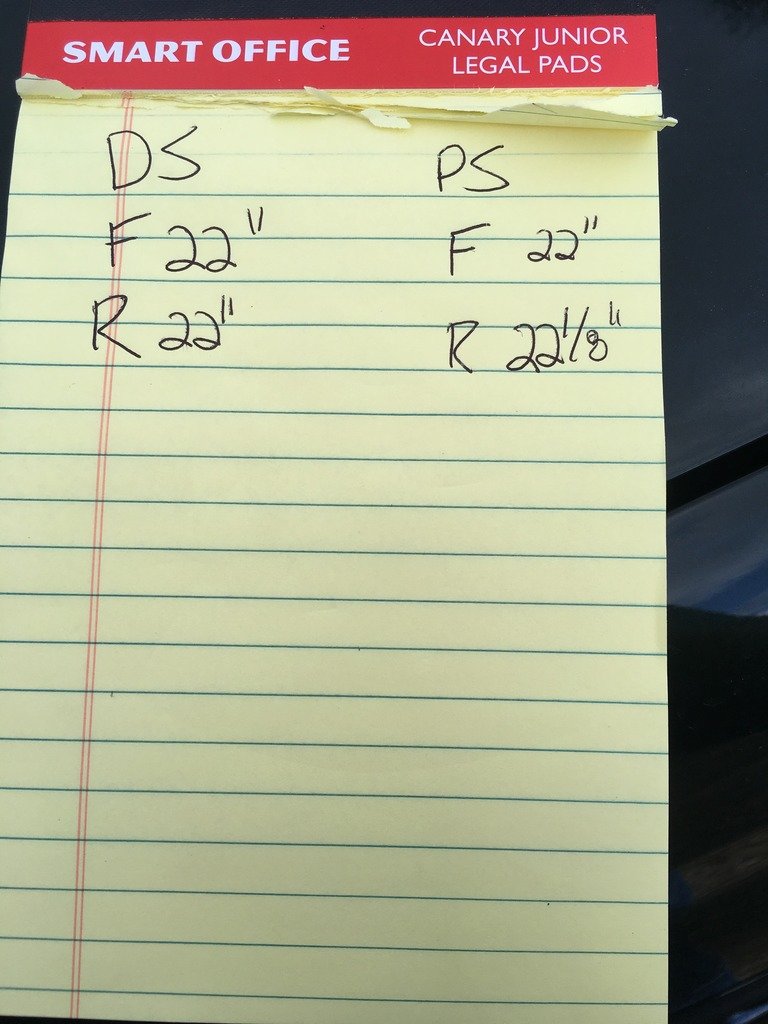 SMART OFFICE CANARY JUNIOR
LEGAL PADS
DS PS
F 22" F 22"
R 22" R 22 1/8"